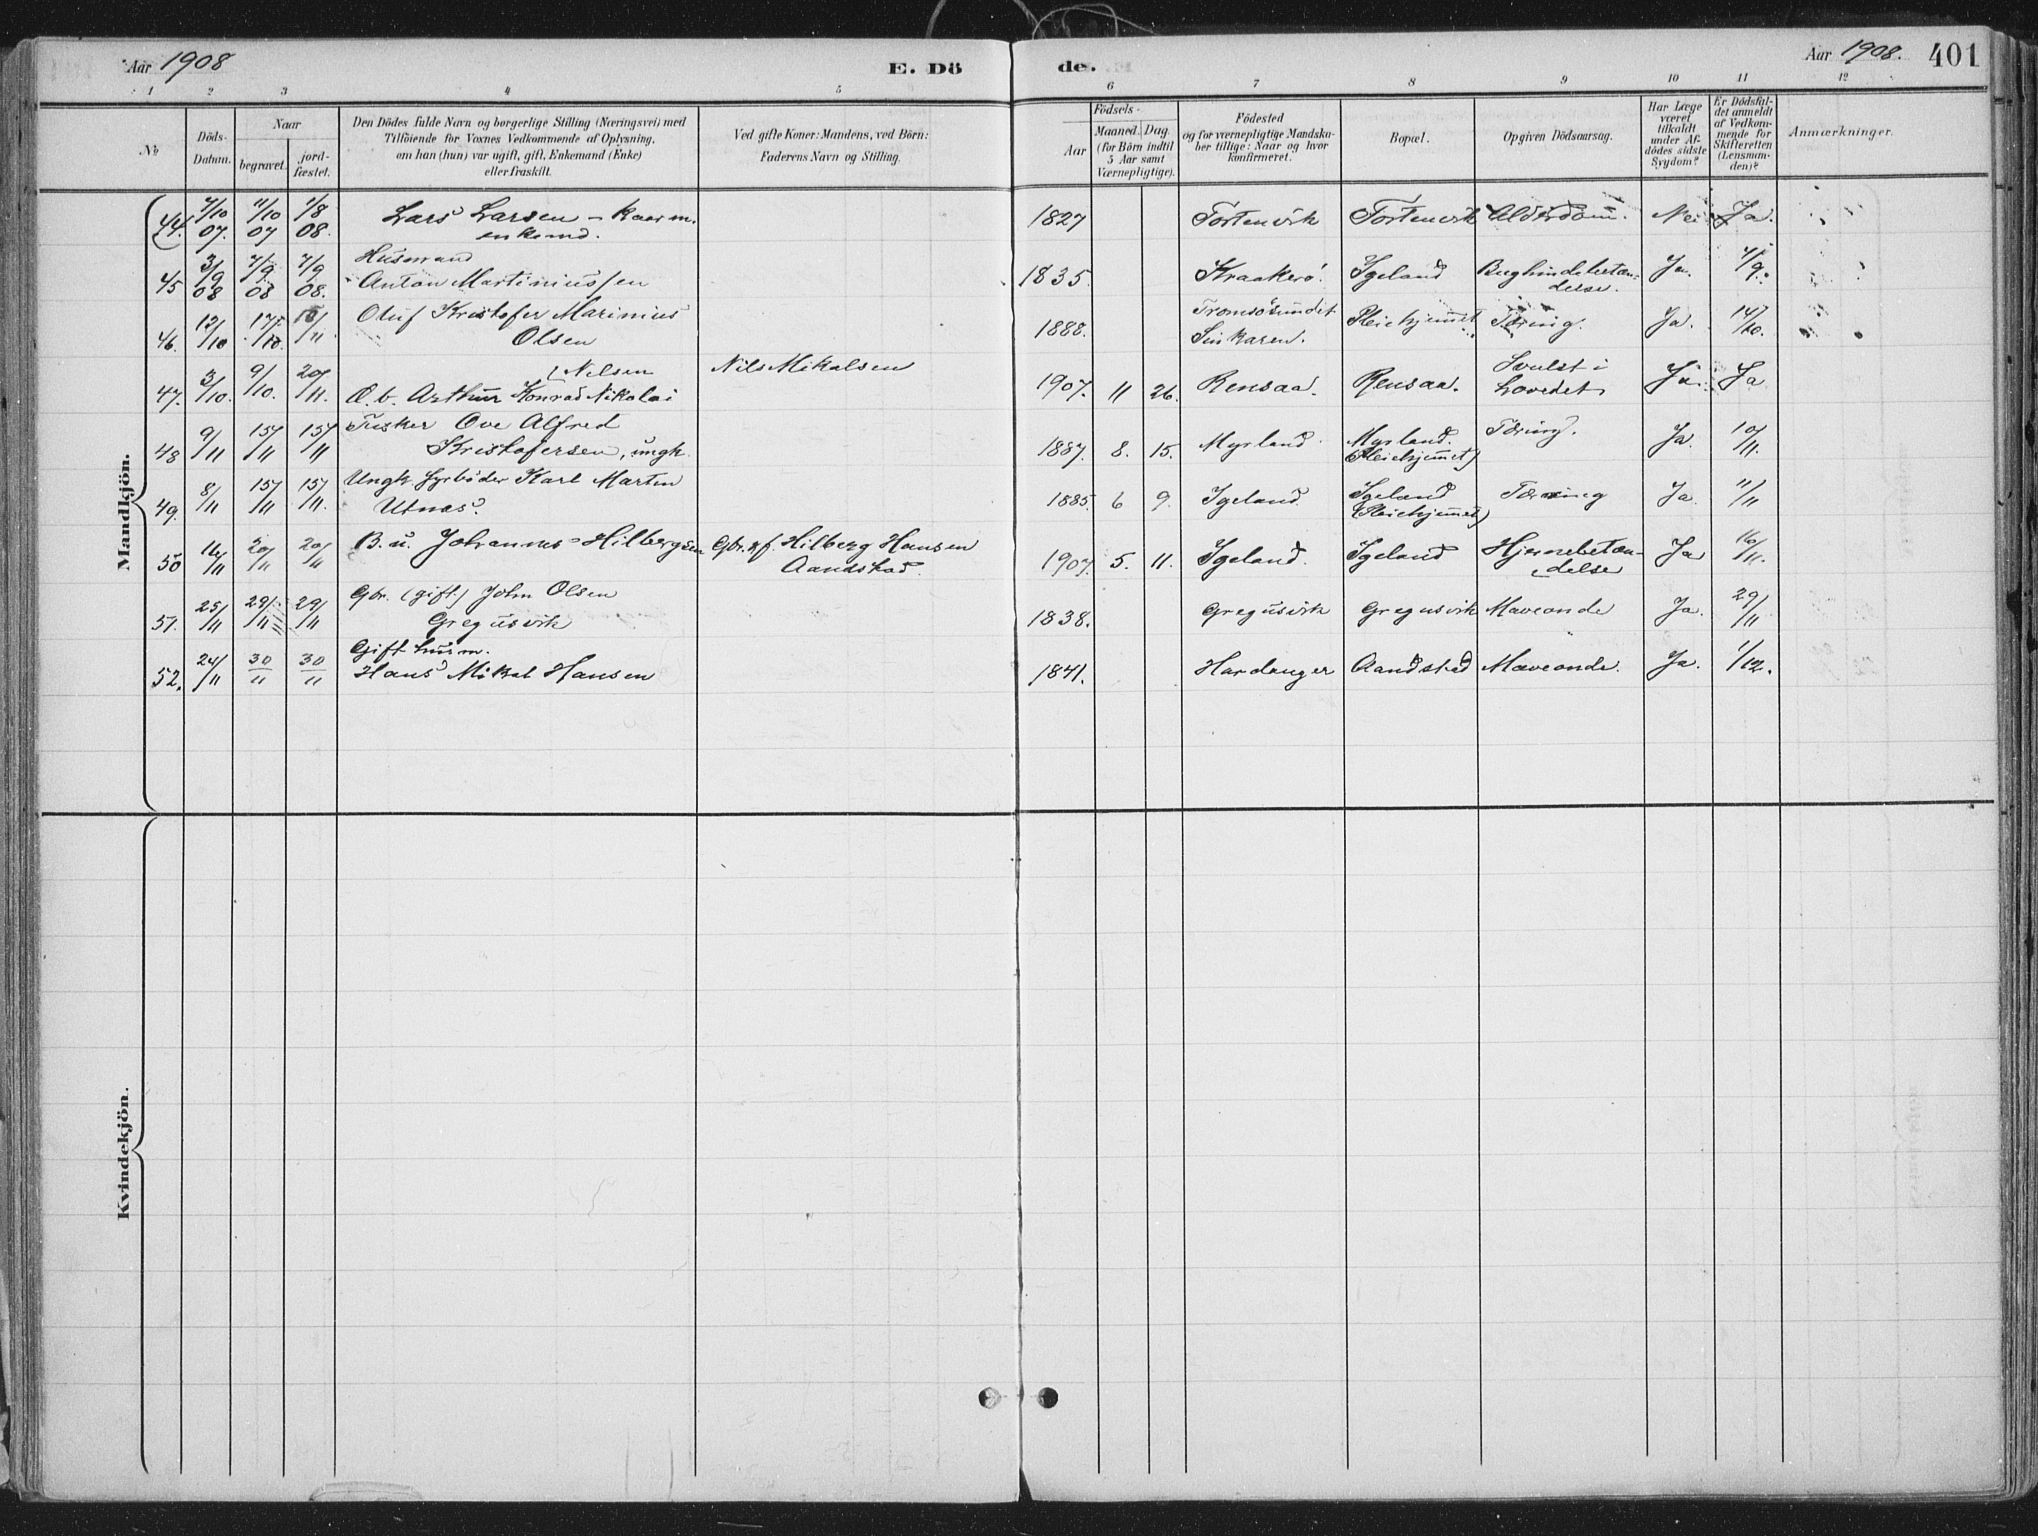 Aar 1908
E. Dö
de.
Aar 1908.
401
1 2 3 4 5 6 7 8 9 10 11 12
No
Döds-
Datum.
Naar
begravet.
jord-
fæstet.
Den Dödes fulde Navn og borgerlige Stilling (Næringsvei) med
Tilföiende for Voxnes Vedkommende af Oplysning,
om han (hun) var ugift, gift, Enkemand (Enke)
eller fraskilt.
Ved gifte Koner: Mandens, ved Börn:
Faderens Navn og Stilling.
Födsels-
Aar
Maaned. Dag.
(for Börn indtil
5 Aar samt
Værnepligtige).
Födested
og for værnepligtige Mandska-
ber tillige: Naar og hvor
konfirmeret.
Bopæl.
Opgiven Dödsaarsag.
Har Læge
været
tilkaldt
under Af-
dödes sidste
Sygdom?
Er Dödsfal-
det anmeldt
af Vedkom-
mende for
Skifteretten
(Lensman-
den)?
Anmærkninger.
Mandkjön.
44. 7/10 07. 11/10 07 1/8 08. Lars Larsen - kaarm. 1827 Tortenvik Tortenvik Alderdom. Nei Ja.
enkemd.
Husmand
45 3/9 08 7/9 08 7/9 08. Anton Martiniussen 1835. Kraakerö. Igeland Bughindebetæn- Ja. 4/9.
delse.
46. 12/10 17/10. /11 Oluf Kristofer Marinius Tromsösundet Pleiehjemmet Tæring. Ja. 14/10.
Olsen 1888.
47. 3/10. 9/10. 20/11. Nilsen Nils Mikalsen 1907. 11 26. Rensaa. Rensaa. Svulst i Ja. Ja
O. b. Arthur Konrad Nikolai hovedet
48 9/11 15/11 15/11 Fisker Ove Alfred 1887. 8. 15. Myrland. Myrland. Tæring. Ja. 10/11.
Kristofersen, ungk. (Pleiehjemmet)
49. 8/11 15/11 15/11. Ungk fyrböder Karl Marten 1885 6 9. Igeland. Igeland Tæring Ja 11/11
Utnes. (Pleiehjemmet)
50 14/11 20/11 20/11 B. u. Johannes Hilbergsen Gbr. Hilberg Hansen 1907. 5. 11. Igeland. Igeland Hjernebetæn- Ja 16/11.
Aandstad. delse
51. 25/11 29/11 29/11 Gbr. (gift) John Olsen 1838. Gregusvik Gregusvik Maveonde Ja. 29/11
Gregusvik
Gift husm.
52. 24/11 30/11 30/11 Hans Mikal Hansen 1841. Hardanger Aandstad Maveonde. Ja. 1/12.
Kvindekjön.